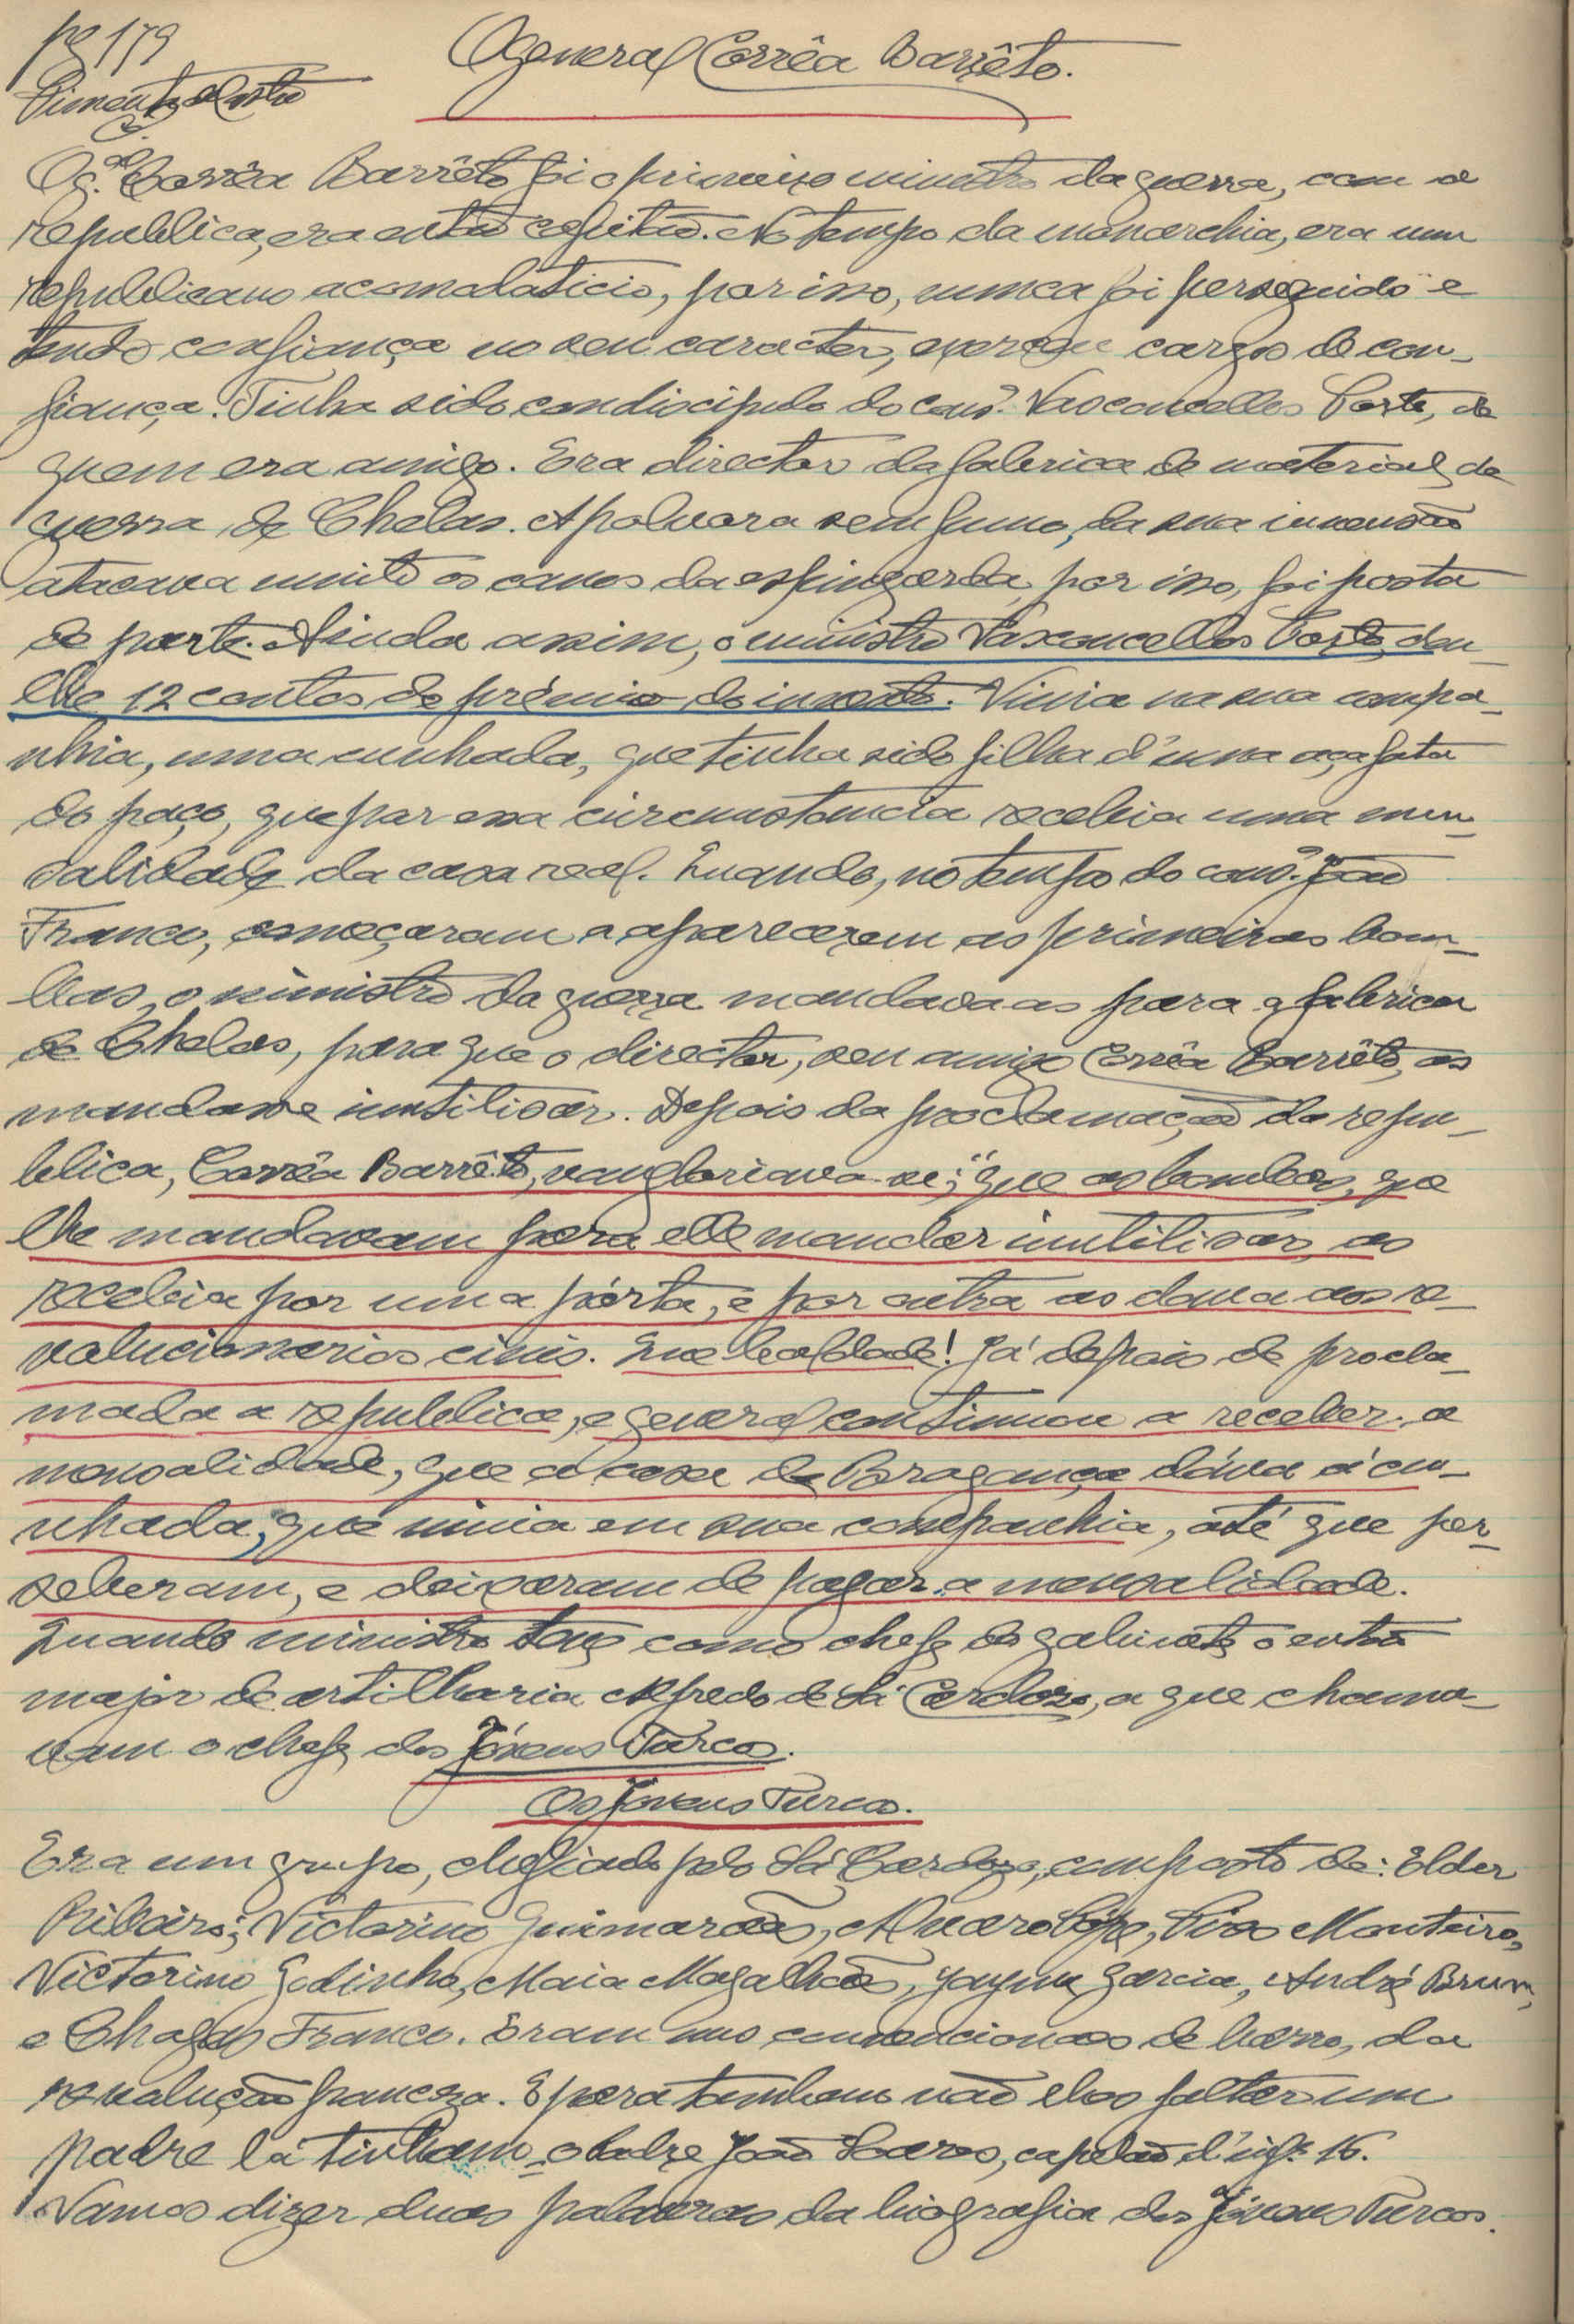 pg 179
O general Corrêa Barrêto.
Pimenta de Castro
O g.al Corrêa Barrêto foi o primeiro ministro da guerra, com a
republica, era então capitão. No tempo da monarchia, era um
republicano acomodaticio, por isso, nunca foi perseguido e
tendo confiança no seu caracter, exerceu cargos de con-
fiança. Tinha sido condiscipulo do cons.o Vasconcellos Porto, de
quem era amigo. Era director da fabrica de material de
guerra de Chelas. A polvora sem fumo, da sua invensão
atacava muito os canos da espingarda, por isso, foi posta
de parte. Ainda assim, o ministro Vasconcellos Porto, deu-
lhe 12 contos de prémio do invento. Vivia na sua compa-
nhia, uma cunhada, que tinha sido filha d'uma açafata
do paço, que por essa circumstancia recebia uma men-
salidade da casa real. Quando, no tempo do cons.o João
Franco, começaram a aparecerem as primeiras bom-
bas, o ministro da guerra mandava as para a fabrica
de Chelas, para que o director, seu amigo Corrêa Barrêto, as
mandasse inutilisar. Depois da proclamação da repu-
blica, Corrêa Barrêto, vangloriava-se; "que as bombas, que
lhe mandavam para elle mandar inutilisar, as
recebia por uma pórta, e por outra as dava aos re-
volucionarios civis. Que lealdade! Já depois de procla-
mada a republica, o general continuou a receber a
mensalidade, que a casa de Bragança dáva á cu-
nhada, que vivia em sua companhia, até que per-
seberam, e deixaram de pagar a mensalidade.
Quando ministro teve como chefe do gabinete o então
major de artilharia Alfredo de Sá Cardozo, a que chama-
vam o chefe dos Jóvens Turcos.
Os Jovens Turcos.
Era um grupo, chefiado pelo Sá Cardozo, composto de: Elder
Ribeiro; Victorino Guimarães, Alvaro Pope, Piso Monteiro,
Victorino Godinho, Maia Magalhães, Jayme Garcia, André Brun,
e Chagas Franco. Eram uns convencionaes de barro, da
revolução franceza. E para tambem não elos faltar um
padre lá tinham o Padre João Soares, capelão d'inf.a 16.
Vamos dizer duas palavras da biografia dos Jóvens Turcos.